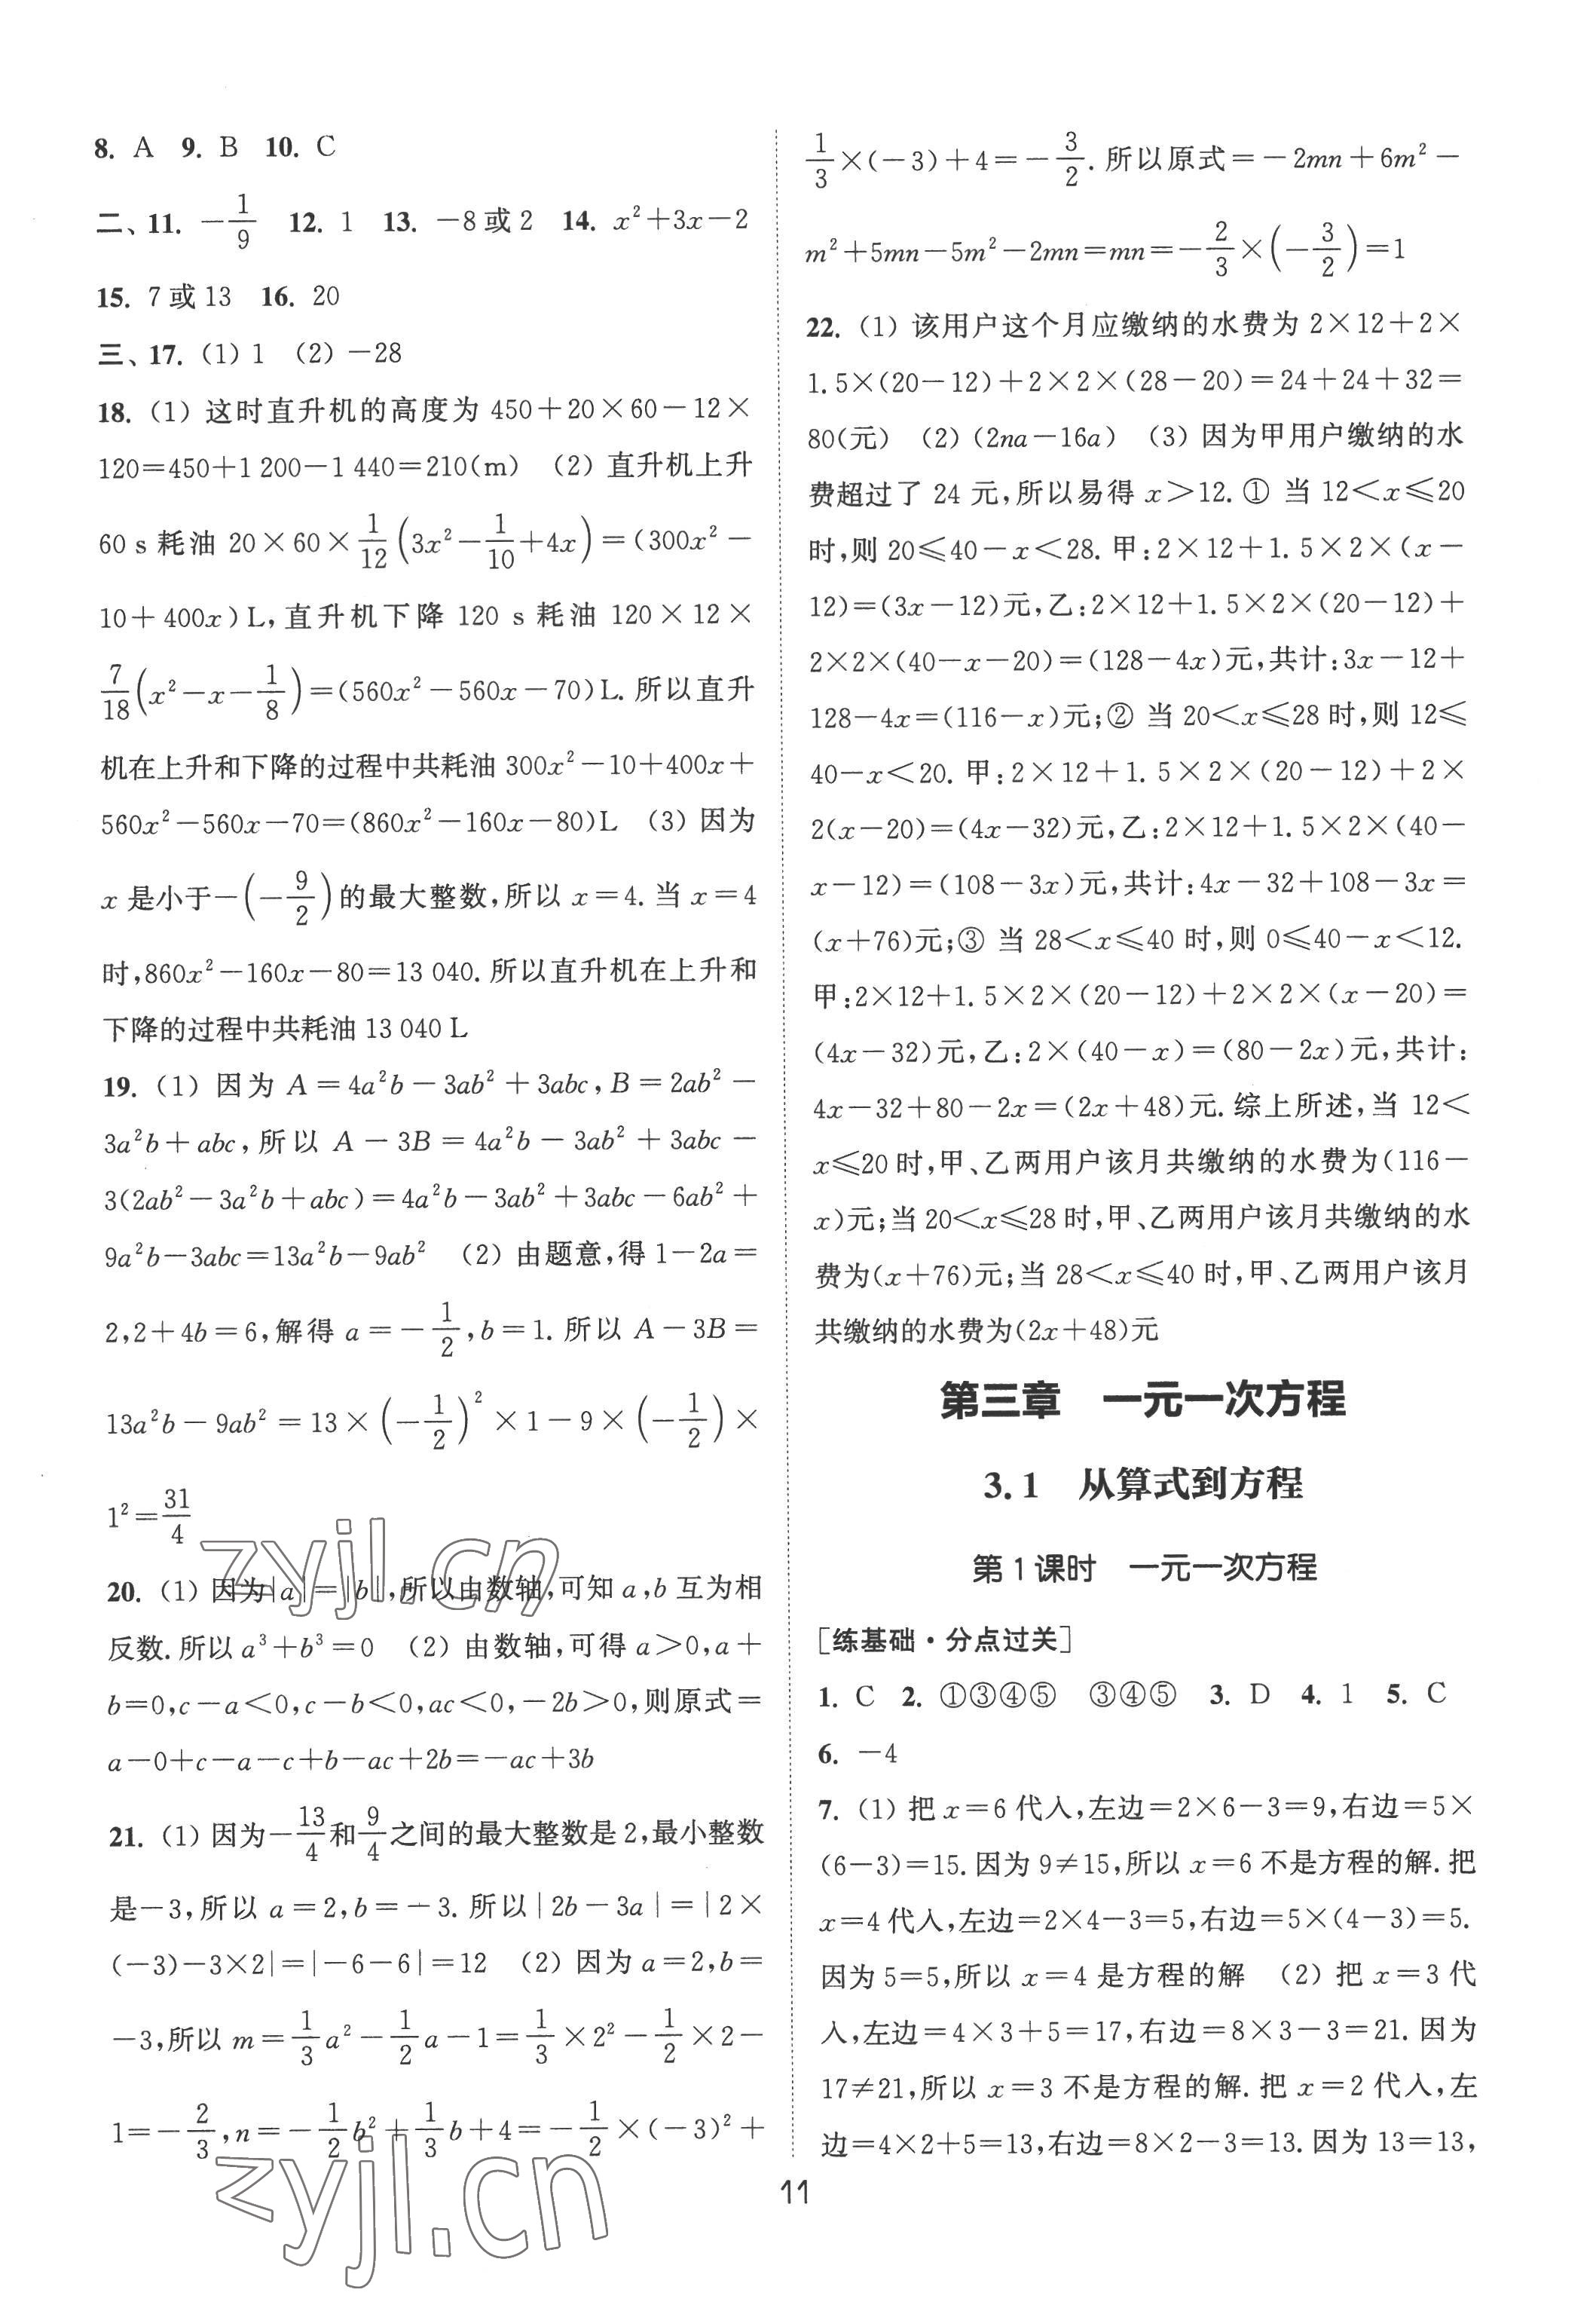 8. A 9. B 10. C
二、11. －1/9 12. 1 13. －8或2 14. x²＋3x－2
15. 7或13 16. 20
三、17. (1) 1 (2) －28
18. (1) 这时直升机的高度为 450＋20×60－12×
120＝450＋1 200－1 440＝210(m) (2) 直升机上升
60 s 耗油 20×60×1/12(3x²－1/10＋4x)＝(300x²－
10＋400x)L,直升机下降 120 s 耗油 120×12×
7/18(x²－x－1/8)＝(560x²－560x－70)L. 所以直升
机在上升和下降的过程中共耗油 300x²－10＋400x＋
560x²－560x－70＝(860x²－160x－80)L (3) 因为
x 是小于－(－9/2)的最大整数,所以 x＝4. 当 x＝4
时,860x²－160x－80＝13 040. 所以直升机在上升和
下降的过程中共耗油 13 040 L
19. (1) 因为 A＝4a²b－3ab²＋3abc,B＝2ab²－
3a²b＋abc,所以 A－3B＝4a²b－3ab²＋3abc－
3(2ab²－3a²b＋abc)＝4a²b－3ab²＋3abc－6ab²＋
9a²b－3abc＝13a²b－9ab² (2) 由题意,得 1－2a＝
2,2＋4b＝6,解得 a＝－1/2,b＝1. 所以 A－3B＝
13a²b－9ab²＝13×(－1/2)²×1－9×(－1/2)×
1²＝31/4
20. (1) 因为|a|＝|b|,所以由数轴,可知 a,b 互为相
反数. 所以 a³＋b³＝0 (2) 由数轴,可得 a＞0,a＋
b＝0,c－a＜0,c－b＜0,ac＜0,－2b＞0,则原式＝
a－0＋c－a－c＋b－ac＋2b＝－ac＋3b
21. (1) 因为－13/4和9/4之间的最大整数是 2,最小整数
是－3,所以 a＝2,b＝－3. 所以|2b－3a|＝|2×
(－3)－3×2|＝|－6－6|＝12 (2) 因为 a＝2,b＝
－3,所以 m＝1/3a²－1/2a－1＝1/3×2²－1/2×2－
1＝－2/3,n＝－1/2b²＋1/3b＋4＝－1/2×(－3)²＋
1/3×(－3)＋4＝－3/2. 所以原式＝－2mn＋6m²－
m²＋5mn－5m²－2mn＝mn＝－2/3×(－3/2)＝1
22. (1) 该用户这个月应缴纳的水费为 2×12＋2×
1.5×(20－12)＋2×2×(28－20)＝24＋24＋32＝
80(元) (2) (2na－16a) (3) 因为甲用户缴纳的水
费超过了 24 元,所以易得 x＞12. ① 当 12＜x≤20
时,则 20≤40－x＜28. 甲:2×12＋1.5×2×(x－
12)＝(3x－12)元,乙:2×12＋1.5×2×(20－12)＋
2×2×(40－x－20)＝(128－4x)元,共计:3x－12＋
128－4x＝(116－x)元;② 当 20＜x≤28 时,则 12≤
40－x＜20. 甲:2×12＋1.5×2×(20－12)＋2×
2(x－20)＝(4x－32)元,乙:2×12＋1.5×2×(40－
x－12)＝(108－3x)元,共计:4x－32＋108－3x＝
(x＋76)元;③ 当 28＜x≤40 时,则 0≤40－x＜12.
甲:2×12＋1.5×2×(20－12)＋2×2×(x－20)＝
(4x－32)元,乙:2×(40－x)＝(80－2x)元,共计:
4x－32＋80－2x＝(2x＋48)元. 综上所述,当 12＜
x≤20 时,甲、乙两用户该月共缴纳的水费为(116－
x)元;当 20＜x≤28 时,甲、乙两用户该月共缴纳的水
费为(x＋76)元;当 28＜x≤40 时,甲、乙两用户该月
共缴纳的水费为(2x＋48)元
第三章 一元一次方程
3.1 从算式到方程
第1课时 一元一次方程
[练基础·分点过关]
1. C 2. ①③④⑤ ③④⑤ 3. D 4. 1 5. C
6. －4
7. (1) 把 x＝6 代入,左边＝2×6－3＝9,右边＝5×
(6－3)＝15. 因为 9≠15,所以 x＝6 不是方程的解. 把
x＝4 代入,左边＝2×4－3＝5,右边＝5×(4－3)＝5.
因为 5＝5,所以 x＝4 是方程的解 (2) 把 x＝3 代
入,左边＝4×3＋5＝17,右边＝8×3－3＝21. 因为
17≠21,所以 x＝3 不是方程的解. 把 x＝2 代入,左
边＝4×2＋5＝13,右边＝8×2－3＝13. 因为 13＝13,
11
zyjl.cn
zyjl.cn